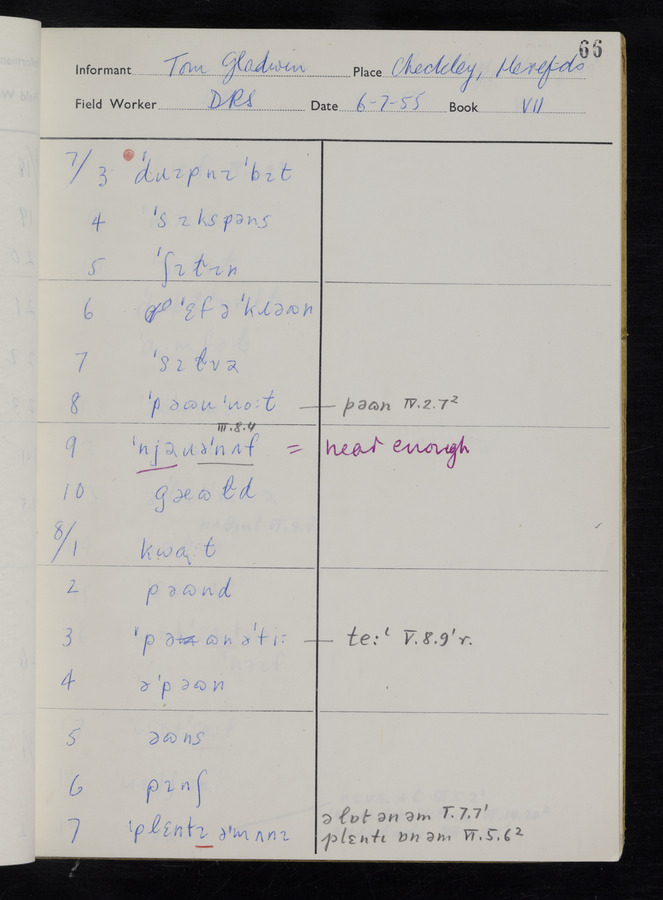 66
Informant Tom Gladwin Place Checkley, Heref-ds
Field Worker DRS Date 6-7-55 Book VII
7/3 ˈdɹɪpnɪˈbɪt
4 ˈsɪkspəns
5 ˈʃɪɫɪn
6 ˈɛf ə ˈkɹəɷn
7 ˈsɪɫvə
8 ˈpəɷnˈnoːt — pəɷn IV.2.7²
III.8.4
9 ˈnjəɹəˈnʌf = near enough
10 gəɷɫd
8/1 kwaːt
2 pəɷnd
3 ˈpəɷnəˈtiː — teːᶥ V.8.9ˈr.
4 əˈpəɷn
5 əɷns
6 pɪnʃ
7 ˈplɛntɪ əˈmʌnɪ
ə lɒt ən əm V.7.7ˈ
plɛntɪ ɒn əm VI.5.6²